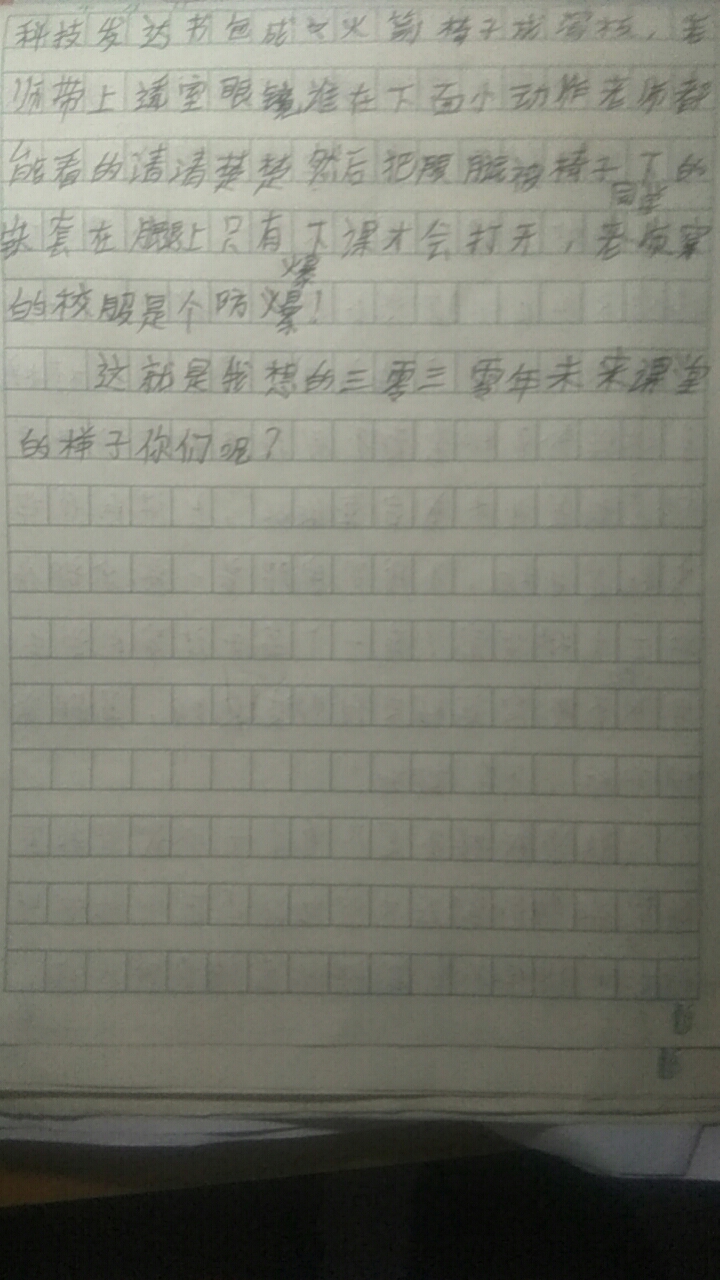 科技发达书包成了火箭椅子成滑板，老
师带上透室眼镜谁在下面小动作老师都
能看的清清楚楚然后把腿服被椅子下的
套在腿上只有下课才会打开，老师同学穿
的校服是个防爆！
这就是我想的三零三零年未来课堂
的样子你们呢？